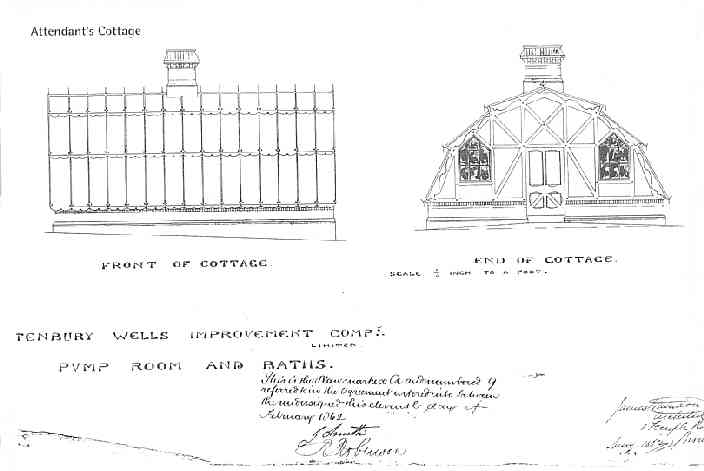 Attendant's Cottage
FRONT OF COTTAGE.
END OF COTTAGE.
SCALE ½ INCH TO A FOOT.
TENBURY WELLS IMPROVEMENT COMPY.
LIMITED
PUMP ROOM AND BATHS.
This is the Plan marked A and numbered 9
referred to in the Agreement entered into between
the undersigned this eleventh day of
February 1862
J Smith
R Robinson
James